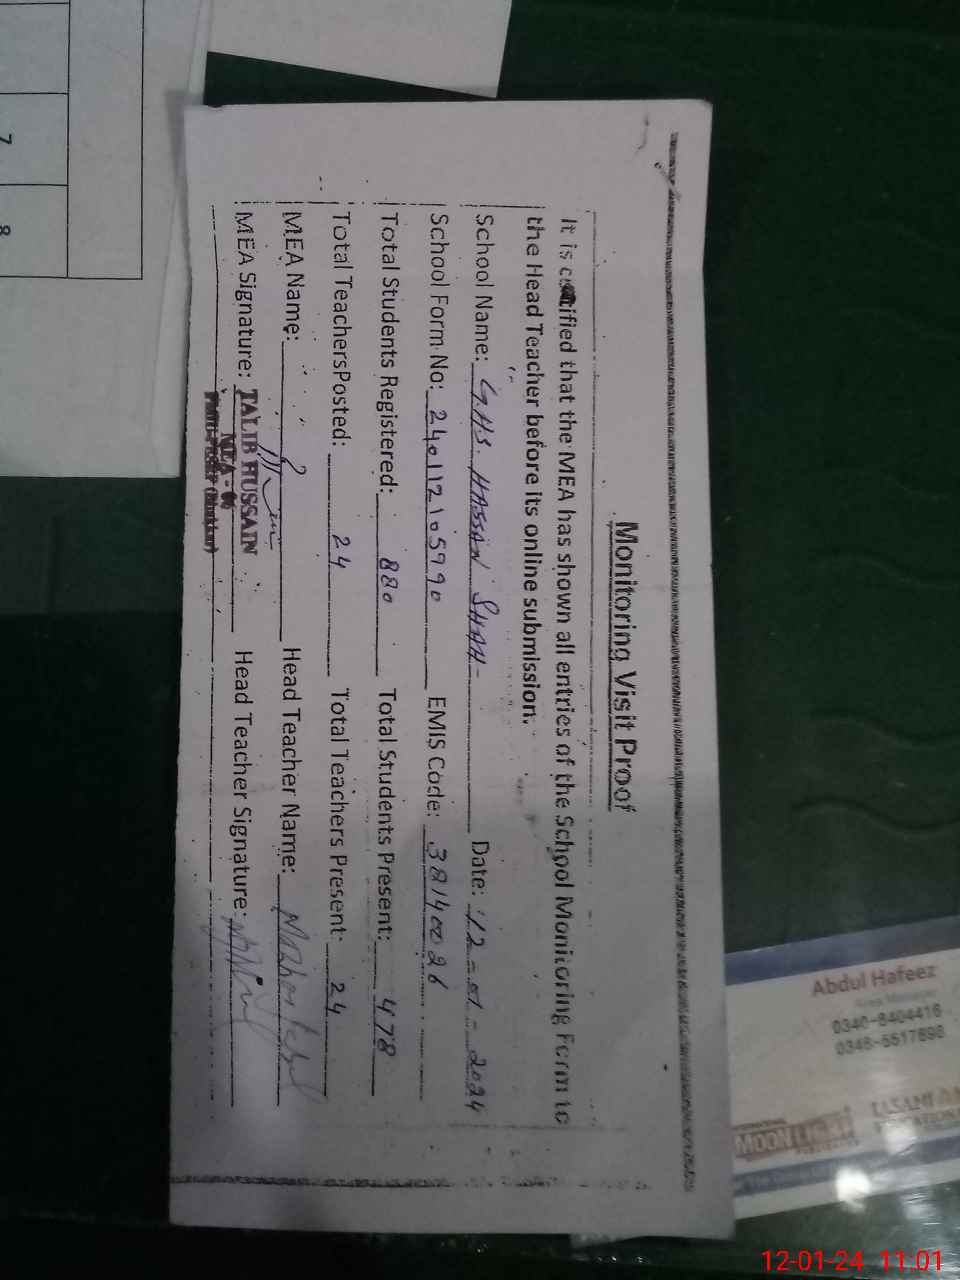 Monitoring Visit Proof
It is certified that the MEA has shown all entries of the School Monitoring Form to
the Head Teacher before its online submission.
School Name: G.H.S. HASSAN SHAH- Date: 12-01-2024
School Form No: 240112105990 EMIS Code: 38140026
Total Students Registered: 880 Total Students Present: 478
Total TeachersPosted: 24 Total Teachers Present: 24
MEA Name: Head Teacher Name:
MEA Signature: TALIB HUSSAIN Head Teacher Signature:
MEA -
(Bhakkar)
7
8
Abdul Hafeez
Area Manager
0346-5517898
MOONLIGHT
12-01-24 11:01